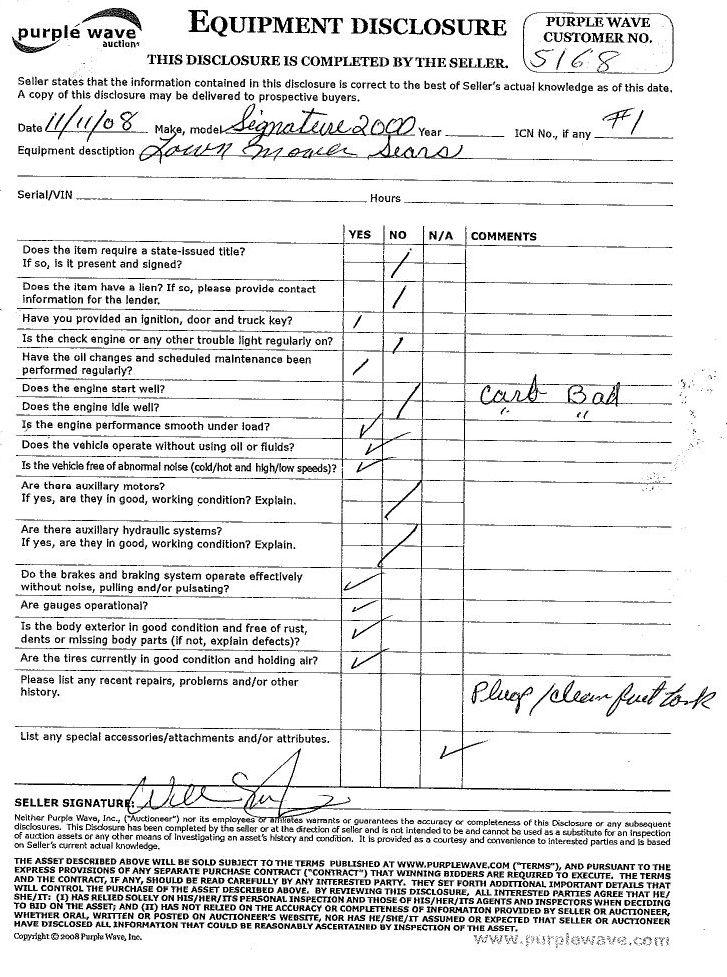 purple wave
auction®
EQUIPMENT DISCLOSURE
PURPLE WAVE
CUSTOMER NO.
5168
THIS DISCLOSURE IS COMPLETED BY THE SELLER.
Seller states that the information contained in this disclosure is correct to the best of Seller's actual knowledge as of this date.
A copy of this disclosure may be delivered to prospective buyers.
Date 11/11/08 Make, model Signature 2000 Year ICN No., if any #1
Equipment desctiption Lawn Mower Sears
Serial/VIN Hours
YES NO N/A COMMENTS
Does the item require a state-issued title?
If so, is it present and signed? /
Does the item have a lien? If so, please provide contact
information for the lender. /
Have you provided an ignition, door and truck key? /
Is the check engine or any other trouble light regularly on? /
Have the oil changes and scheduled maintenance been
performed regularly? /
Does the engine start well? / Carb Bad
Does the engine idle well? " "
Is the engine performance smooth under load? ✓
Does the vehicle operate without using oil or fluids? ✓
Is the vehicle free of abnormal noise (cold/hot and high/low speeds)? ✓
Are there auxillary motors?
If yes, are they in good, working condition? Explain. /
Are there auxillary hydraulic systems?
If yes, are they in good, working condition? Explain. /
Do the brakes and braking system operate effectively
without noise, pulling and/or pulsating? ✓
Are gauges operational? ✓
Is the body exterior in good condition and free of rust,
dents or missing body parts (if not, explain defects)? ✓
Are the tires currently in good condition and holding air? ✓
Please list any recent repairs, problems and/or other
history. /clean fuel tank
List any special accessories/attachments and/or attributes. ✓
SELLER SIGNATURE:
Neither Purple Wave, Inc., ("Auctioneer") nor its employees or affiliates warrants or guarantees the accuracy or completeness of this Disclosure or any subsequent
disclosures. This Disclosure has been completed by the seller or at the direction of seller and is not intended to and cannot be used as a substitute for an inspection
of auction assets or any other means of investigating an asset's history and condition. It is provided as a courtesy and convenience to interested parties and is based
on Seller's current actual knowledge.
THE ASSET DESCRIBED ABOVE WILL BE SOLD SUBJECT TO THE TERMS PUBLISHED AT WWW.PURPLEWAVE.COM ("TERMS"), AND PURSUANT TO THE
EXPRESS PROVISIONS OF ANY SEPARATE PURCHASE CONTRACT ("CONTRACT") THAT WINNING BIDDERS ARE REQUIRED TO EXECUTE. THE TERMS
AND THE CONTRACT, IF ANY, SHOULD BE READ CAREFULLY BY ANY INTERESTED PARTY. THEY SET FORTH ADDITIONAL IMPORTANT DETAILS THAT
WILL CONTROL THE PURCHASE OF THE ASSET DESCRIBED ABOVE. BY REVIEWING THIS DISCLOSURE, ALL INTERESTED PARTIES AGREE THAT HE/
SHE/IT: (I) HAS RELIED SOLELY ON HIS/HER/ITS PERSONAL INSPECTION AND THOSE OF HIS/HER/ITS AGENTS AND INSPECTORS WHEN DECIDING
TO BID ON THE ASSET; AND (II) HAS NOT RELIED ON THE ACCURACY OR COMPLETENESS OF INFORMATION PROVIDED BY SELLER OR AUCTIONEER,
WHETHER ORAL, WRITTEN OR POSTED ON AUCTIONEER'S WEBSITE, NOR HAS HE/SHE/IT ASSUMED OR EXPECTED THAT SELLER OR AUCTIONEER
HAVE DISCLOSED ALL INFORMATION THAT COULD BE REASONABLY ASCERTAINED BY INSPECTION OF THE ASSET.
Copyright © 2008 Purple Wave, Inc.
www.purplewave.com